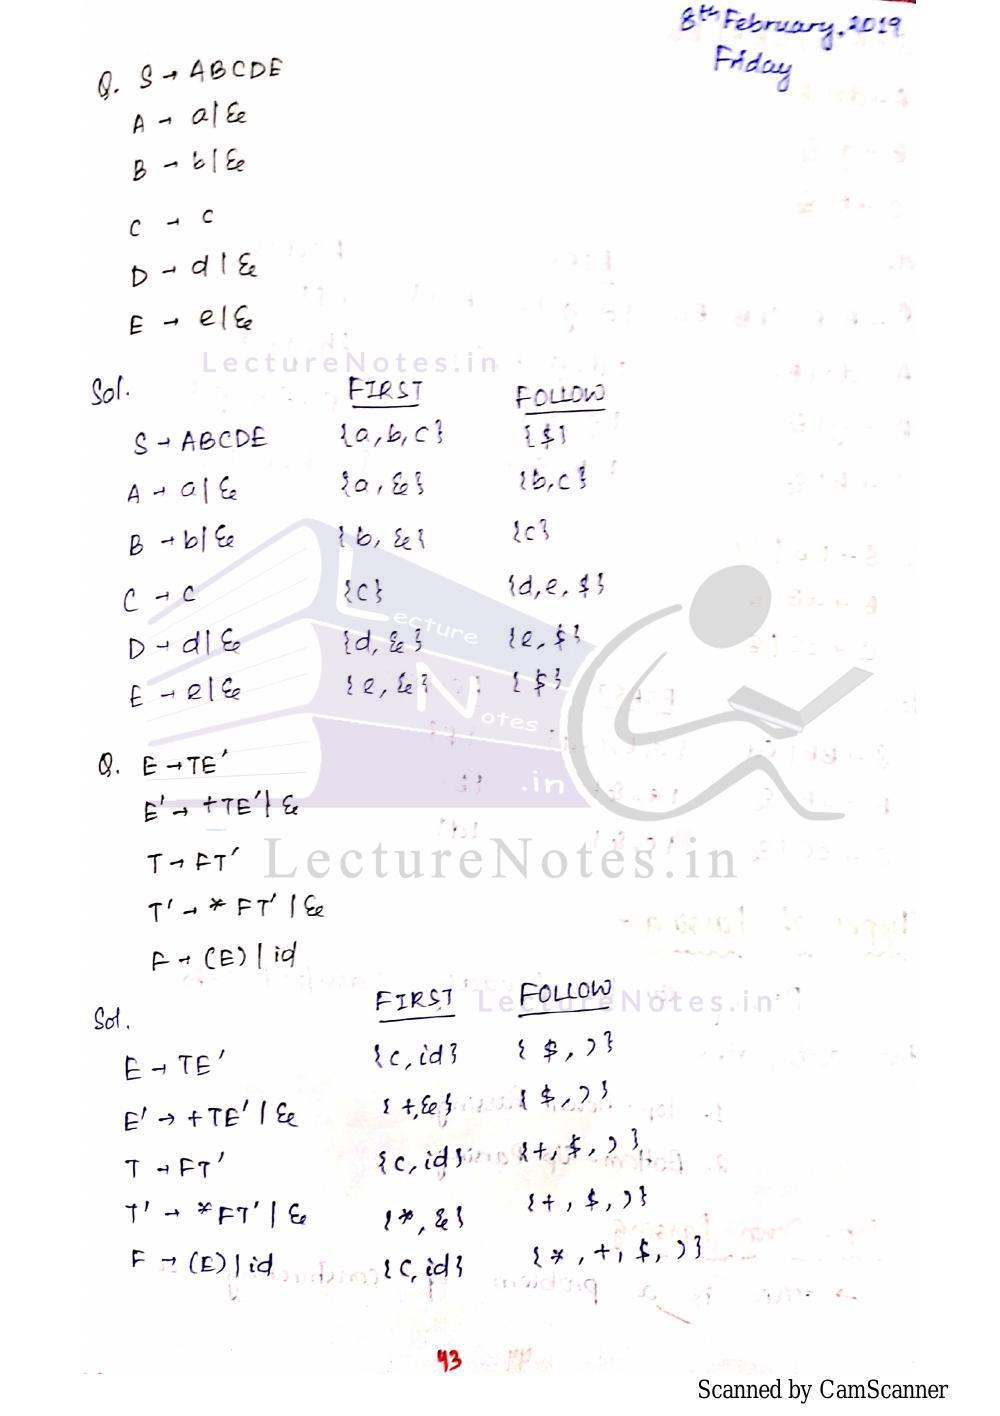 8th February, 2019
Friday
Q. S → ABCDE
A → a|ε
B → b|ε
C → c
D → d|ε
E → e|ε
LectureNotes.in
Sol. FIRST FOLLOW
S → ABCDE {a,b,c} {$}
A → a|ε {a,ε} {b,c}
B → b|ε {b,ε} {c}
C → c {c} {d,e,$}
D → d|ε {d,ε} {e,$}
E → e|ε {e,ε} {$}
Lecture
Notes
.in
Q. E → TE'
E' → +TE'|ε
T → FT'
LectureNotes.in
T' → *FT'|ε
F → (E)|id
Sol. FIRST FOLLOW
LectureNotes.in
E → TE' {(,id} {$,)}
E' → +TE'|ε {+,ε} {$,)}
T → FT' {(,id} {+,$,)}
T' → *FT'|ε {*,ε} {+,$,)}
F → (E)|id {(,id} {*,+,$,)}
43
Scanned by CamScanner